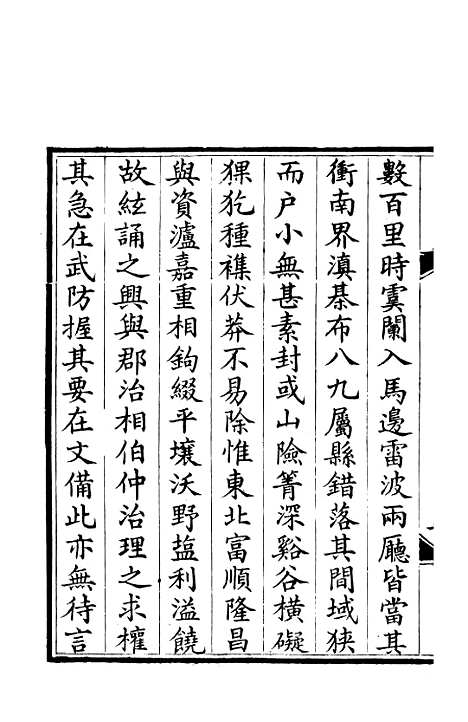 數百里時虞闌入馬邊雷波兩廳皆當其
衝南界滇棊布八九屬縣錯落其間域狹
而戶小無甚素封或山險箐深谿谷橫礙
猓犵種襍伏莽不易除惟東北富順隆昌
與資瀘嘉重相鉤綴平壤沃野塩利溢饒
故絃誦之興與郡治相伯仲治理之求權
其急在武防握其要在文備此亦無待言